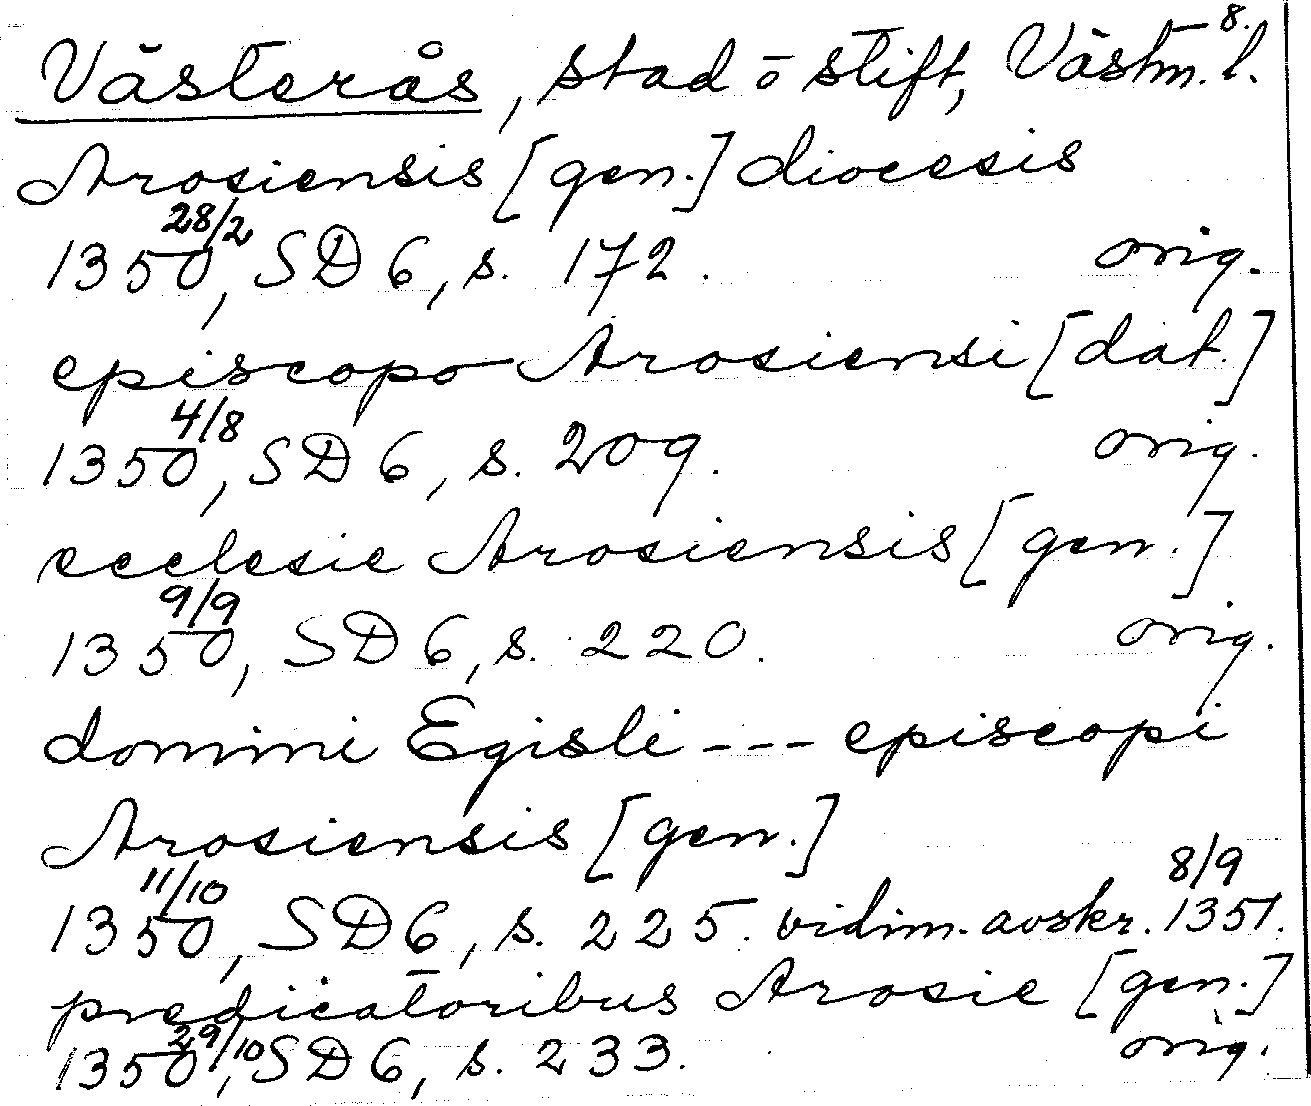 8.
Västerås, stad o stift, Västm. l.
Arosiensis [gen.] diocesis
28/2
1350, SD 6, s. 172. orig.
episcopo Arosiensi [dat.]
4/8
1350, SD 6, s. 209. orig.
ecclesie Arosiensis [gen.]
9/9
1350, SD 6, s. 220. orig.
domini Egisli --- episcopi
Arosiensis [gen.]
11/10 8/9
1350, SD 6, s. 225. vidim. avskr. 1351.
predicatoribus Arosie [gen.]
29/10
1350, SD 6, s. 233. orig.